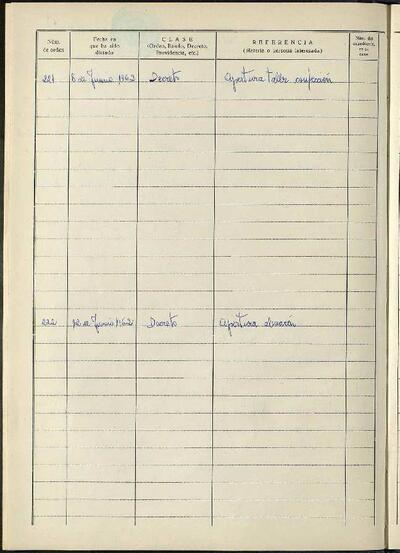 Núm. de orden
Fecha en que ha sido dictado
CLASE
(Orden, Bando, Decreto, Providencia, etc.)
REFERENCIA
(Materia o persona interesada)
Núm. de expediente, en su caso
221 8 de Junio 1962 Decreto Apertura taller confección
222 12 de Junio 1962 Decreto Apertura almacén